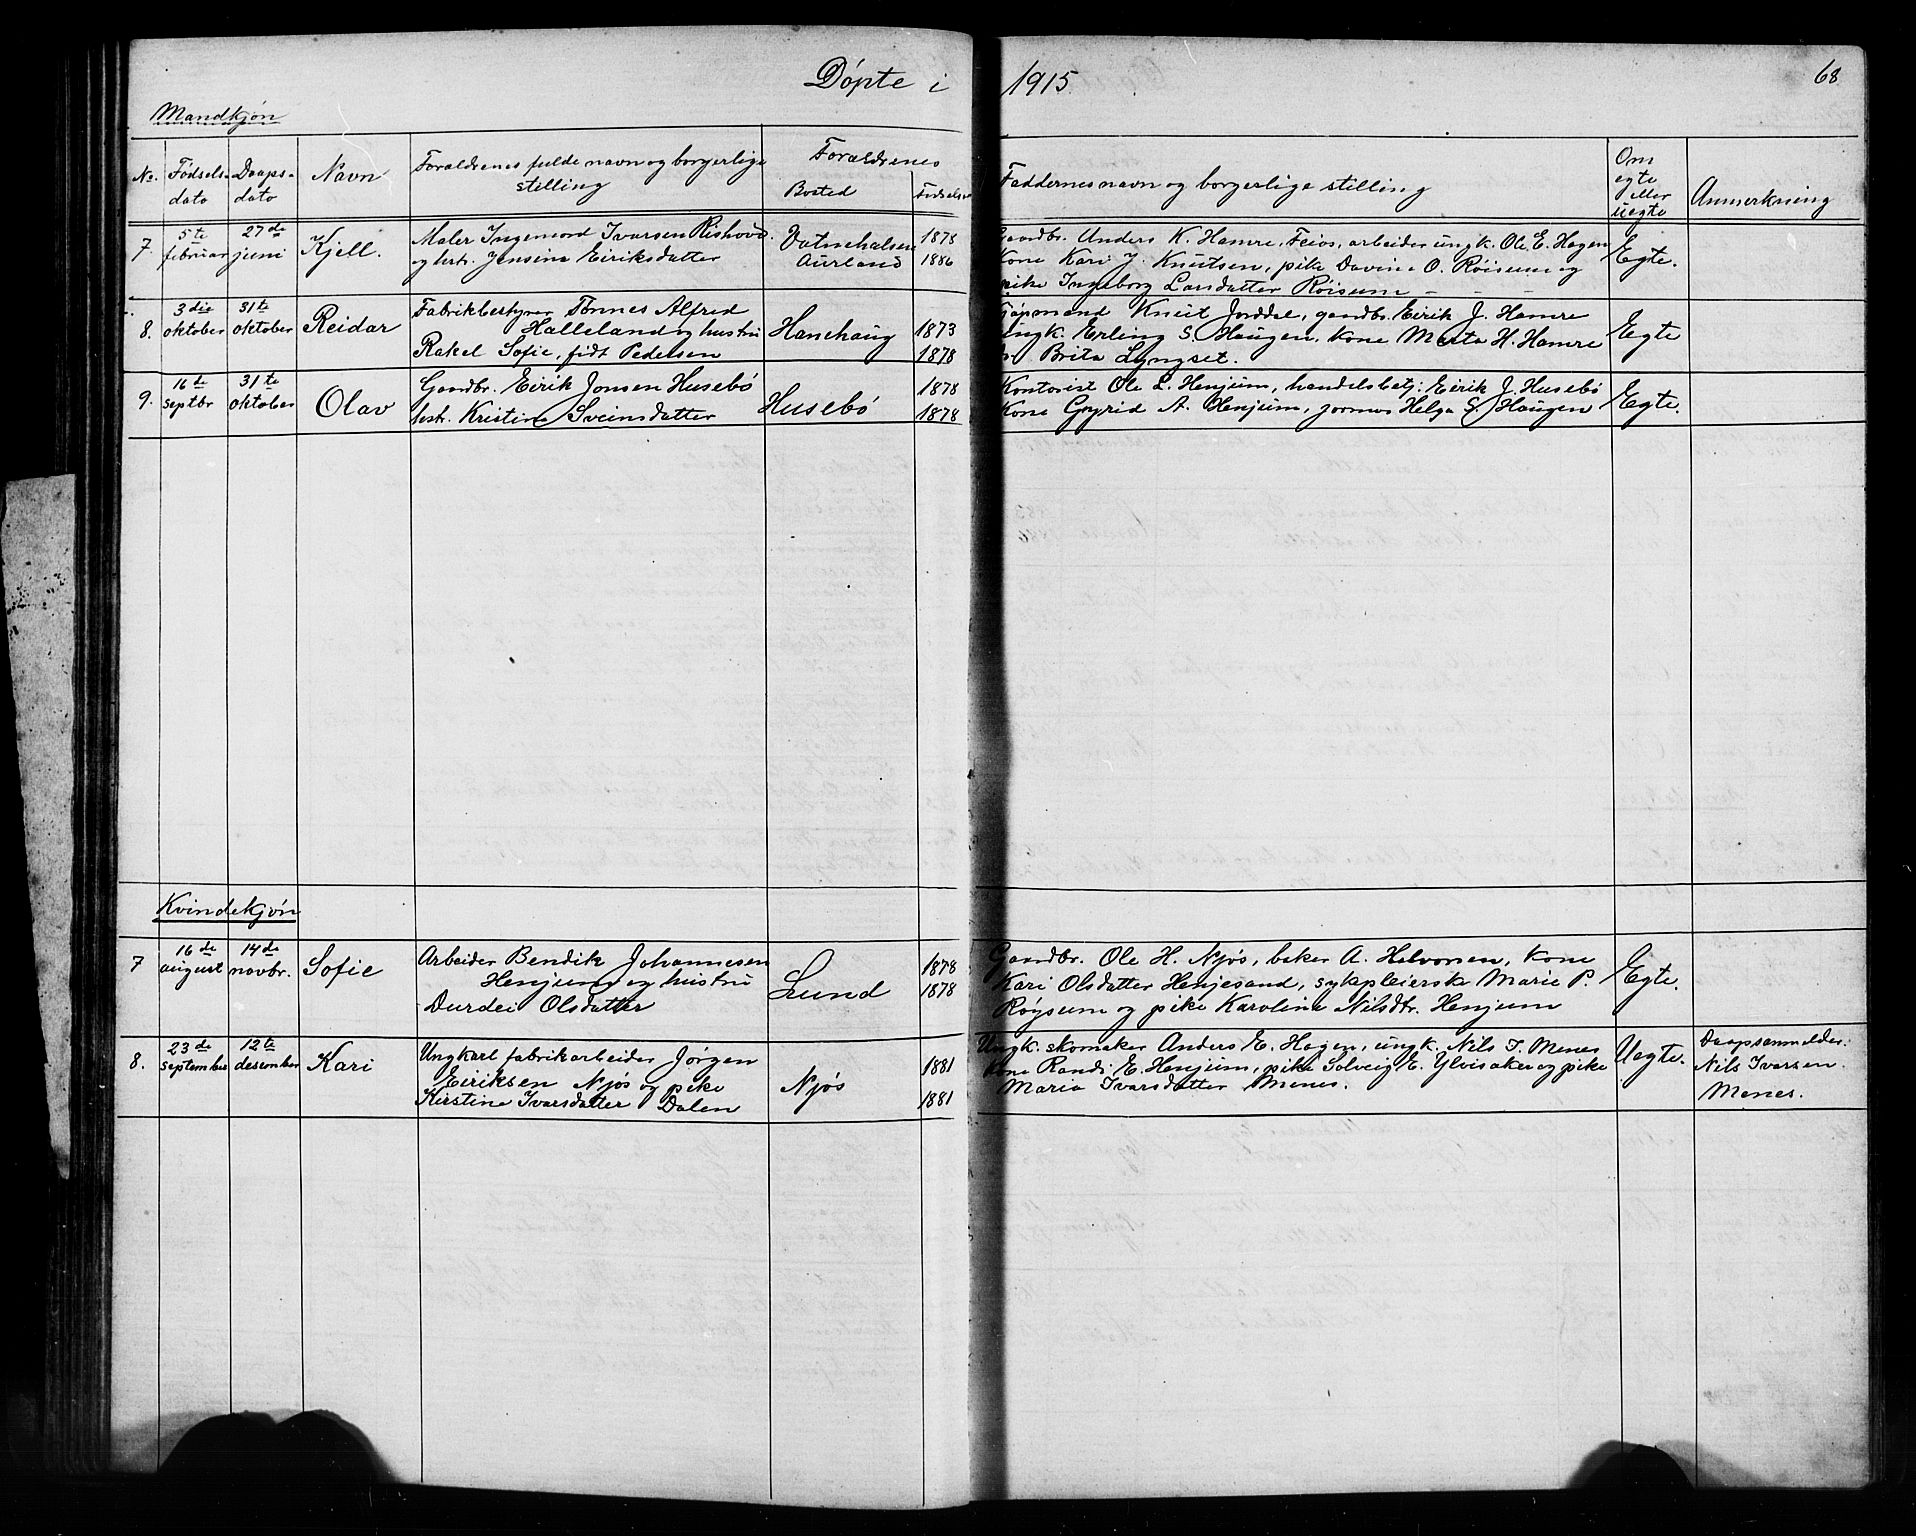 Døpte i 1915. 68
Mandkjøn
No. Fødsels-dato Daaps-dato Navn Forældrenes fulde navn og borgerlige stilling Forældrenes Bosted Fødselsaar Faddernes navn og borgerlige stilling Om egte eller uegte Anmerkning
7. 5te februar 27de juni Kjell. Maler Ingemond Ivarsen Rishovd. Vatnehalsen 1878 Gaardbr. Anders K. Hamre, Feios, arbeider ungk. Ole E. Hagen Egte.
og hstr. Jensine Eiriksdatter Aurland 1886 Kone Kari J. Knutsen, pike Davine O. Röisum og
pike Ingeborg Larsdatter Röisum - - -
8. 3die oktober 31te oktober Reidar Fabrikbestyrer Tønnes Alfred Hanehaug 1873 Knut Jorddal, gaardbr. Eirik J. Hamre Egte
Halleland og hustru ungk. Erling S. Haugen, kone Marta H. Hamre
Rakel Sofie, født Pedersen 1878 Brita Lyngset.
9. 16de septbr 31te oktober Olav Gaardbr. Eirik Jonsen Husebö Husebö 1878 Kontorist Ole L. Henjum, handelsbetj: Eirik J. Husebö Egte.
hstr. Kristine Sveinsdatter 1878 Kone Gyrid A. Henjum, jormor Helga S. Haugen
Kvindekjøn
7 16de august 14de novbr. Sofie Arbeider Bendik Johannesen Lund 1878 Gaardbr. Ole H. Njøs, baker A. Halvorsen, kone Egte.
Henjum og hustru 1878 Kari Olsdatter Henjesand, sykepleierske Marie P.
Durdei Olsdatter Røysum og pike Karoline Nilsdtr. Henjum
8. 23de september 12te desember Kari Ungkarl fabrikarbeider Jørgen Njøs 1881 Ungk. skomaker Anders E. Hagen, ungk. Nils I. Menes Uegte. Daapsanmelder:
Eiriksen Njøs og pike kone Randi E. Henjum, pike Solveig E. Ylvisaker og pike Nils Ivarsen
Kirstine Ivarsdatter Dalen 1881 Maria Ivarsdatter Menes. Menes.